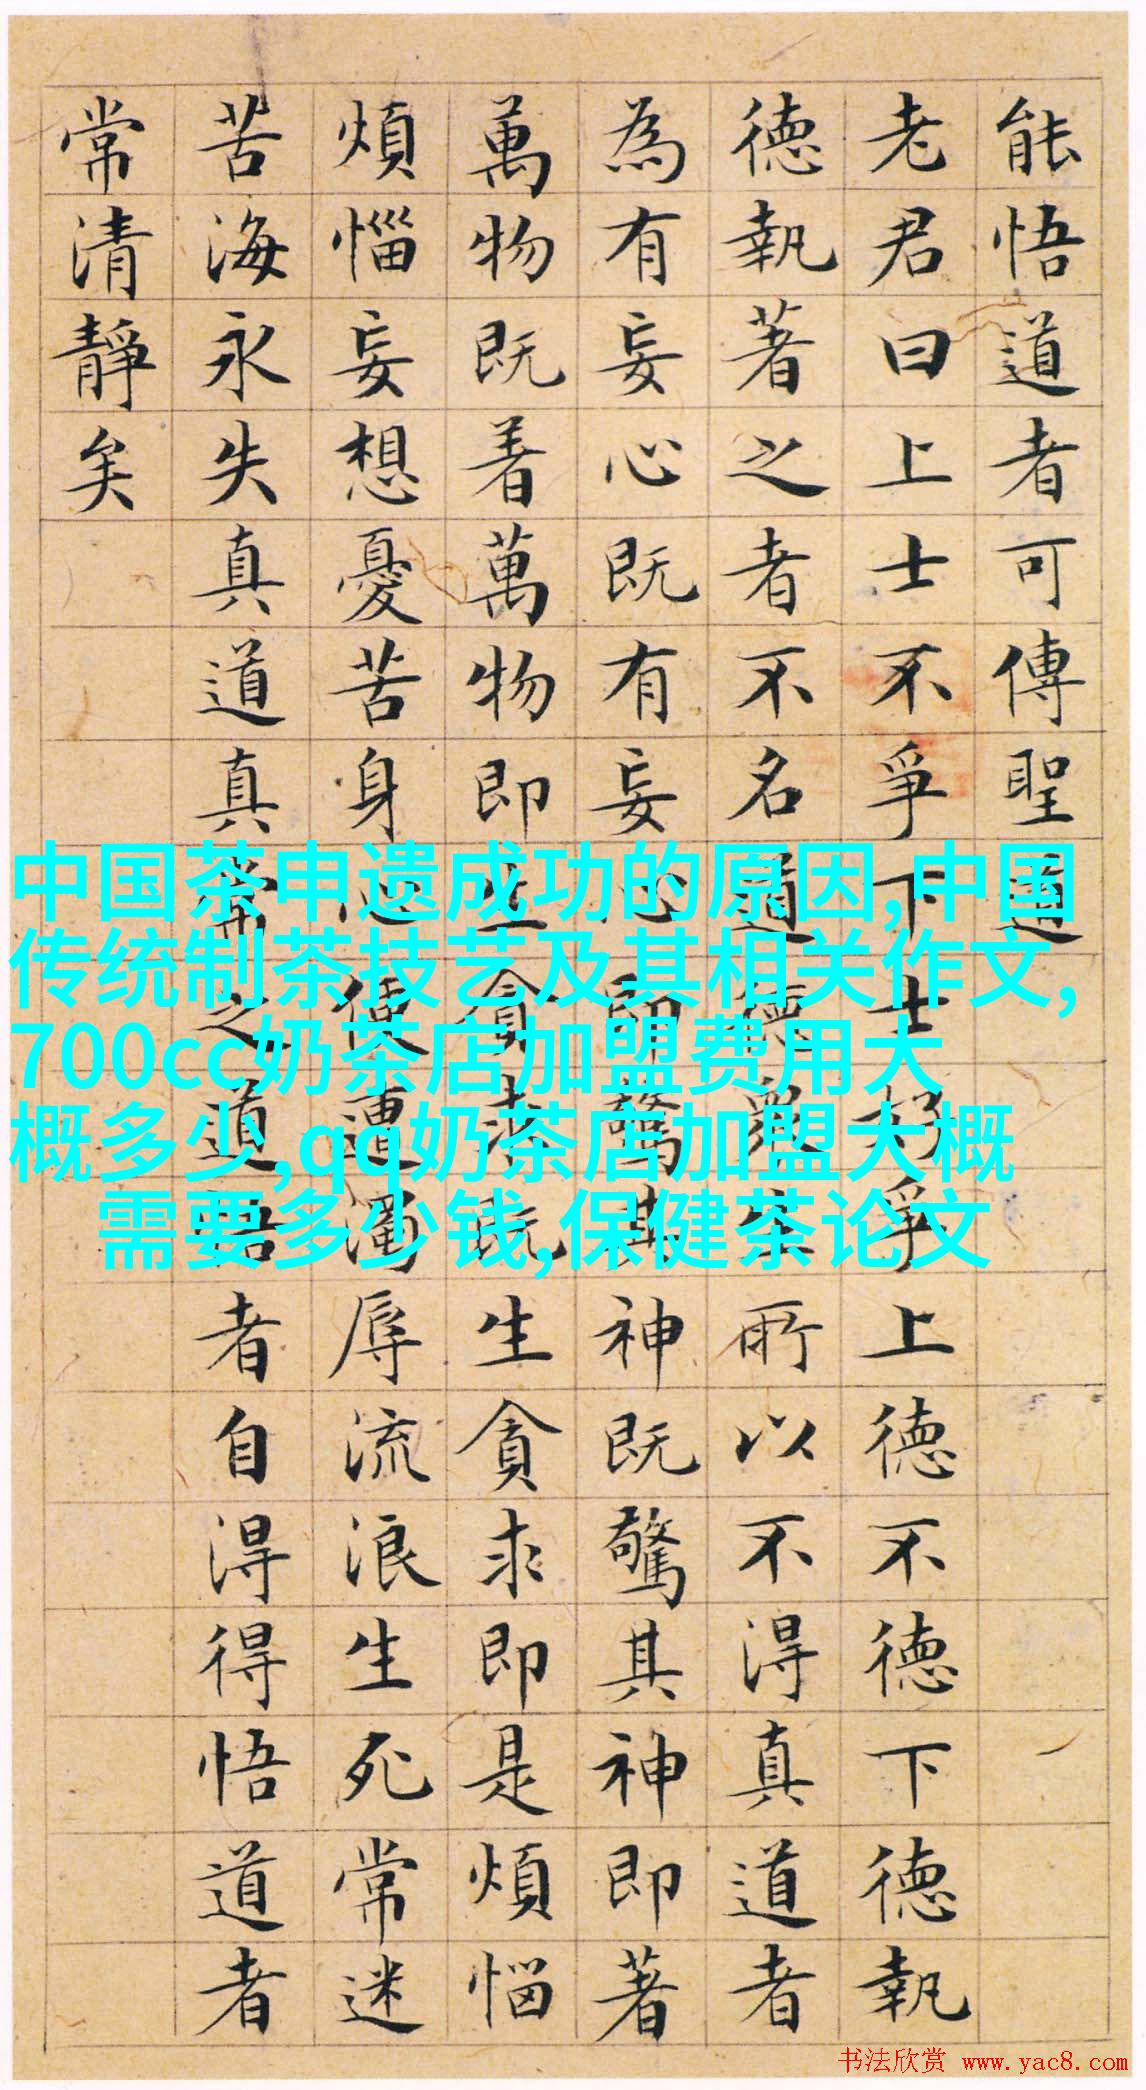 能悟道者可傳聖道
老君曰上士不爭下士好爭上德不德下德執
德執著之者不名道德眾生所以不得真道者
為有妄心既有妄心即驚其神既驚其神即著
萬物既着萬物即生貪求既生貪求即是煩惱
煩惱妄想憂苦身心便遭濁辱流浪生死常迷
苦海永失真道真常之道悟者自得得悟道者
常清靜矣
中国茶申遗成功的原因,中国
传统制茶技艺及其相关作文,
700cc奶茶店加盟费用大
概多少,qq奶茶店加盟大概
需要多少钱,保健茶论文
书法欣赏 www.yac8.com